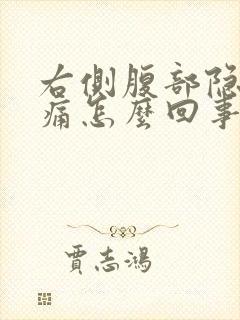 右側腹部隐
痛怎麽回事
賈志鴻